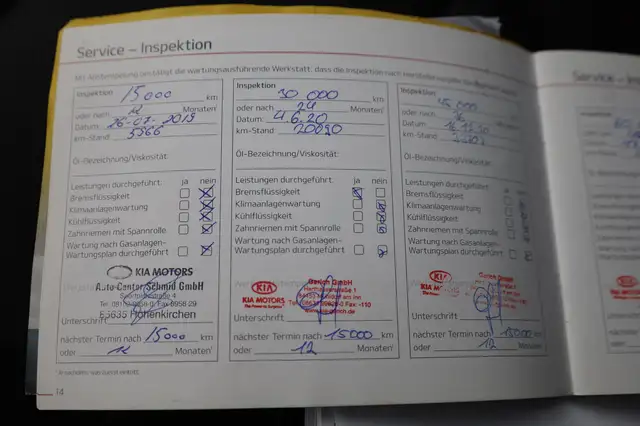 Service – Inspektion
Inspektion 15000 km
oder nach 12 Monaten¹
Datum: 26-07-2019
km-Stand: 5566
Öl-Bezeichnung/Viskosität:
Leistungen durchgeführt: ja nein
Bremsflüssigkeit
Klimaanlagenwartung
Kühlflüssigkeit
Zahnriemen mit Spannrolle
Wartung nach Gasanlagen-
Wartungsplan durchgeführt
KIA MOTORS
Auto-Center Schmid GmbH
Sportplatzstraße 4
85635 Höhenkirchen
Unterschrift
nächster Termin nach 15000 km
oder 12 Monaten¹
Inspektion
30 000 km
oder nach 24 Monaten¹
Datum: 4.6.20
km-Stand: 20090
Öl-Bezeichnung/Viskosität:
Leistungen durchgeführt: ja nein
Bremsflüssigkeit
Klimaanlagenwartung
Kühlflüssigkeit
Zahnriemen mit Spannrolle
Wartung nach Gasanlagen-
Wartungsplan durchgeführt
KIA MOTORS
GmbH
Unterschrift
nächster Termin nach 15000 km
oder 12 Monaten¹
Inspektion 45 000 km
oder nach 36 Monaten¹
Datum:
km-Stand:
Öl-Bezeichnung/Viskosität:
Leistungen durchgeführt:
Bremsflüssigkeit
Klimaanlagenwartung
Kühlflüssigkeit
Zahnriemen mit Spannrolle
Wartung nach Gasanlagen-
Wartungsplan durchgeführt
KIA
Unterschrift
nächster Termin nach 15000 km
oder 12 Monaten¹
14
Service – In